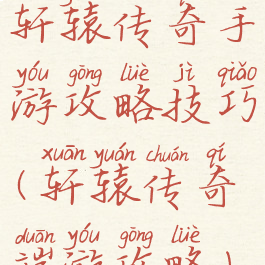 轩辕传奇手
yóu gōng lüè jì qiǎo
游攻略技巧
xuān yuán chuán qí
(轩辕传奇
duān yóu gōng lüè
端游攻略)